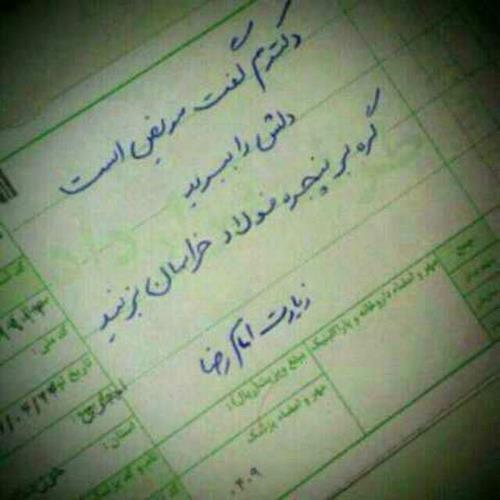 دکترم گفت مریض است
دلش را ببرید
گره بر پنجره فولاد خراسان بزنید
زیارت امام رضا
مهر و امضاء داروخانه و پاراکلینیک
مبلغ ویزیت (ریال):
مهر و امضاء پزشک
کد ملی:
تاریخ
استان: